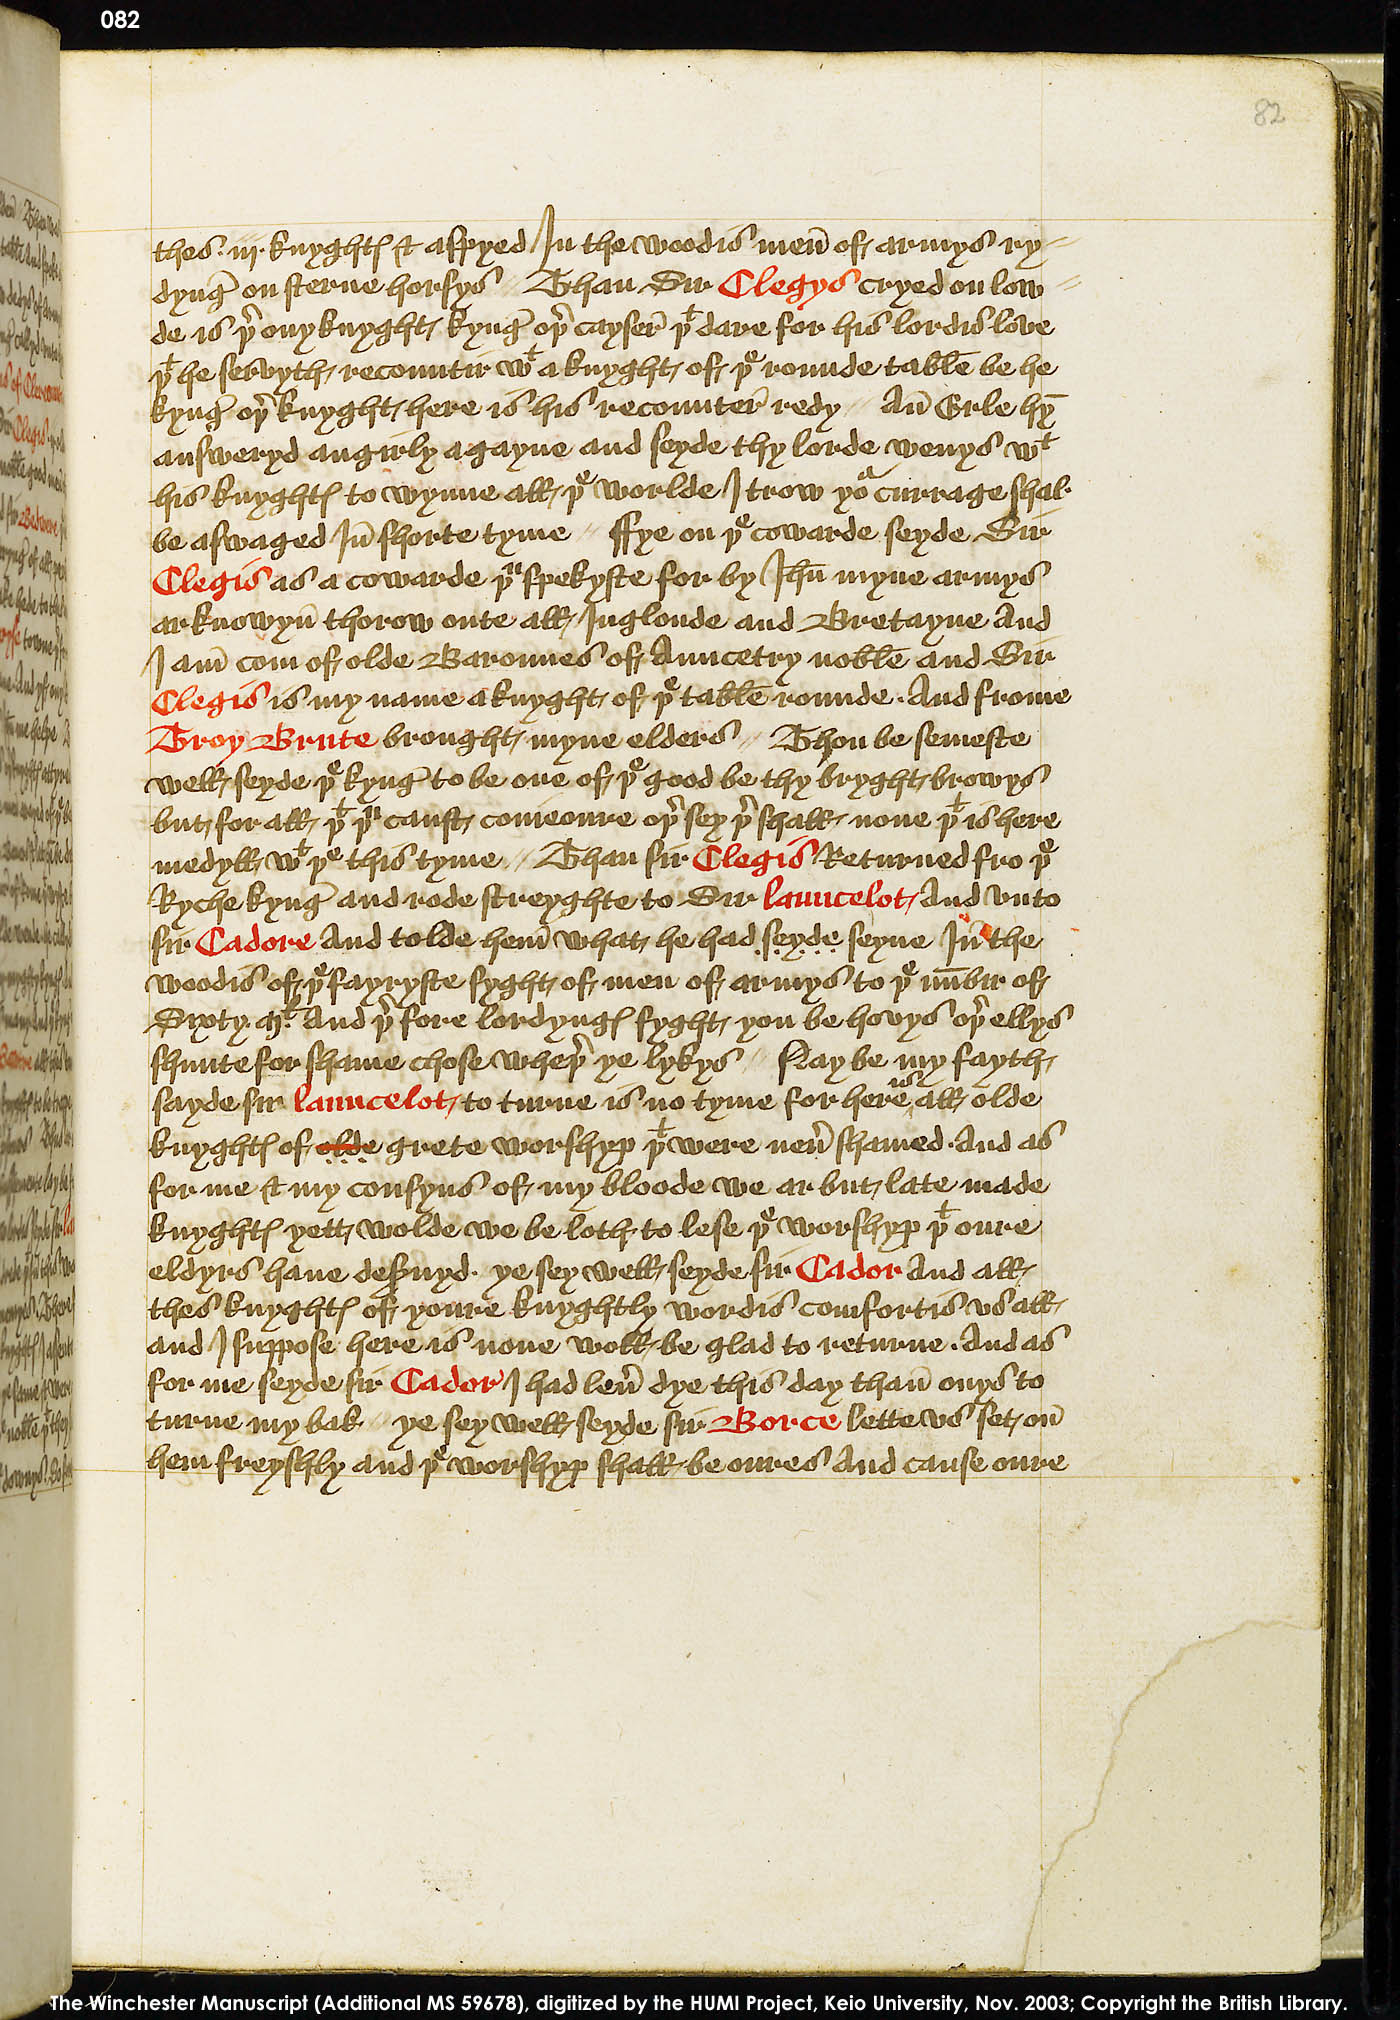 082
82
thes .iij. knyghtꝭ & aspyed In the woodis men̄ of armys ry=
dyng̃ on sterne horsys // Than Sir Clegys cryed on low=
de is þ̉ ony knyght kyng̃ oþ̉ cayser̃ þͭ dare for his lordis love
þͭ he servyth recountir wͭ a knyght of þͤ rounde table be he
kyng̃ oþ̉ knyght here is his recounter̃ redy // An̄ Erle hȳ
answeryd angirly agayne and seyde thy lorde wenys wͭ
his knyghtꝭ to wynne all þͤ worlde I trow yoͬ currage shal
be aswaged In̄ shorte tyme // ffye on þͤ cowarde seyde Sir
Clegis as a cowarde þͧ spekyste for by Ihū myne armys
ar knowyn̄ thorow oute all Inglonde and Bretayne And
I am̄ com of olde Barounes of Auncetry noble and Sir
Clegis is my name a knyght of þͤ table rounde . And frome
Troy Brute brought myne elders // Thou be semeste
well seyde þͤ kyng̃ to be one of þͤ good be thy bryght browys
but for all þͭ þͧ canst conieoure oþ̉ sey þ̉ shall none þͭ is here
medyll wͭ þͤ this tyme // Than sir Clegis Returned fro þͤ
Ryche kyng̃ and rode streyghte to Sir launcelot And vnto
sir Cadore And tolde hem̄ what he had seyde seyne In̄ the
woodis of þͤ fayryste syght of men of armys to þͤ nūbir of
Sixty . Mͭ. And þ̉ fore lordyngꝭ fyght you be hovys oþ̉ ellys
shunte for shame chose wheþ̉ ye lykys // Nay be my fayth
sayde sir launcelot to turne is no tyme for here is all olde
knyghtꝭ of olde grete worshyp þͭ were neũ shamed . And as
for me & my cousyns of my bloode we ar but late made
knyghtꝭ yett wolde we be loth to lese þͤ worshyp þͭ oure
eldyrs haue deẞuyd . ye sey well seyde sir Cador And all
thes knyghtꝭ of youre knyghtly wordis comfortis vs all
and I suppose here is none woll be glad to returne . And as
for me seyde sir Cador I had leũ dye this day than̄ onys to
turne my bak // ye sey well seyde sir Borce lette vs set on̄
hem freyshly and þͤ worshyp shall be oures And cause oure
The Winchester Manuscript (Additional MS 59678), digitized by the HUMI Project, Keio University, Nov. 2003; Copyright the British Library.